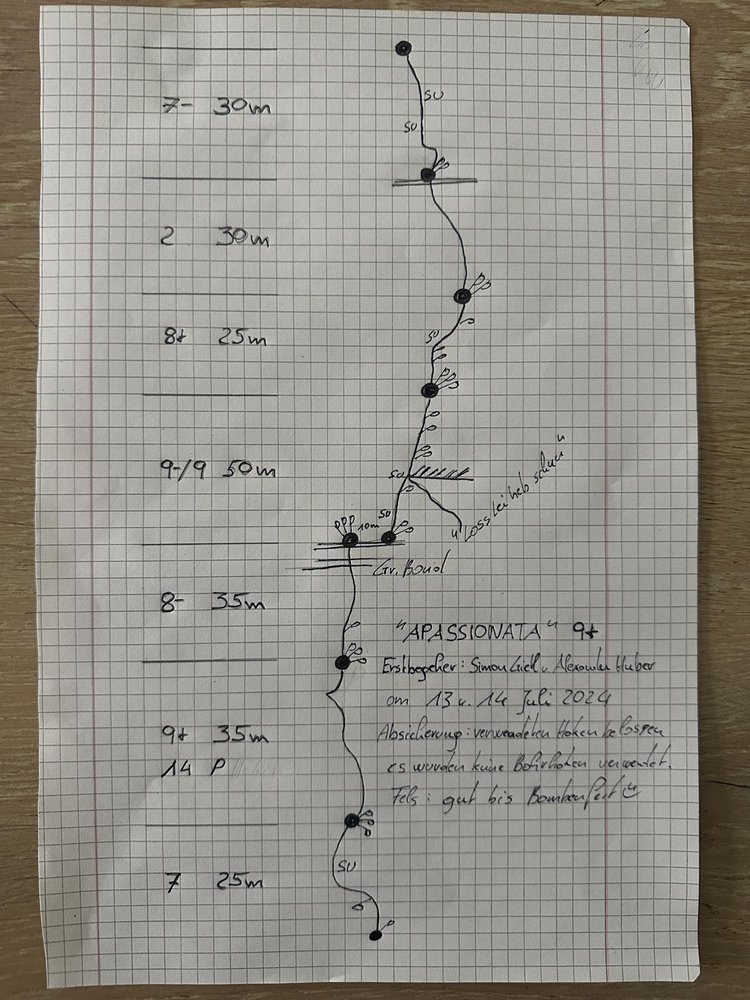 7- 30m
SU
SU
2 30m
8+ 25m
SU
9-/9 50m
SU
"Loss lei heb schun"
SU
10m
Gr. Band
8- 35m
"APASSIONATA" 9+
Erstbegeher: Simon Gietl u. Alexander Huber
am 13 u. 14 Juli 2024
9+ 35m
Absicherung: verwendeten Haken belassen
14 P
es wurden keine Bohrhaken verwendet.
Fels: gut bis Bombenfest
SU
7 25m